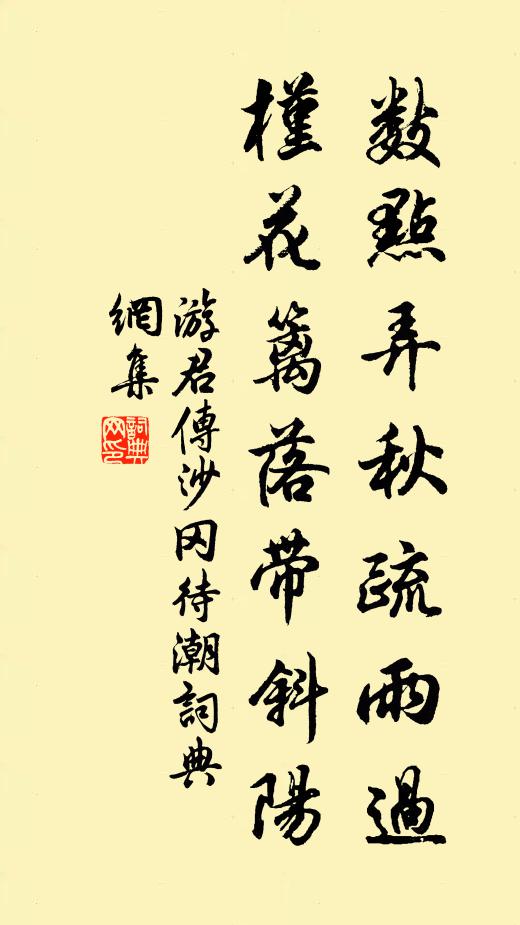 數點弄秋疏雨過
槿花籬落帶斜陽
游君傳沙岡待潮詞典
網集
詞典網印